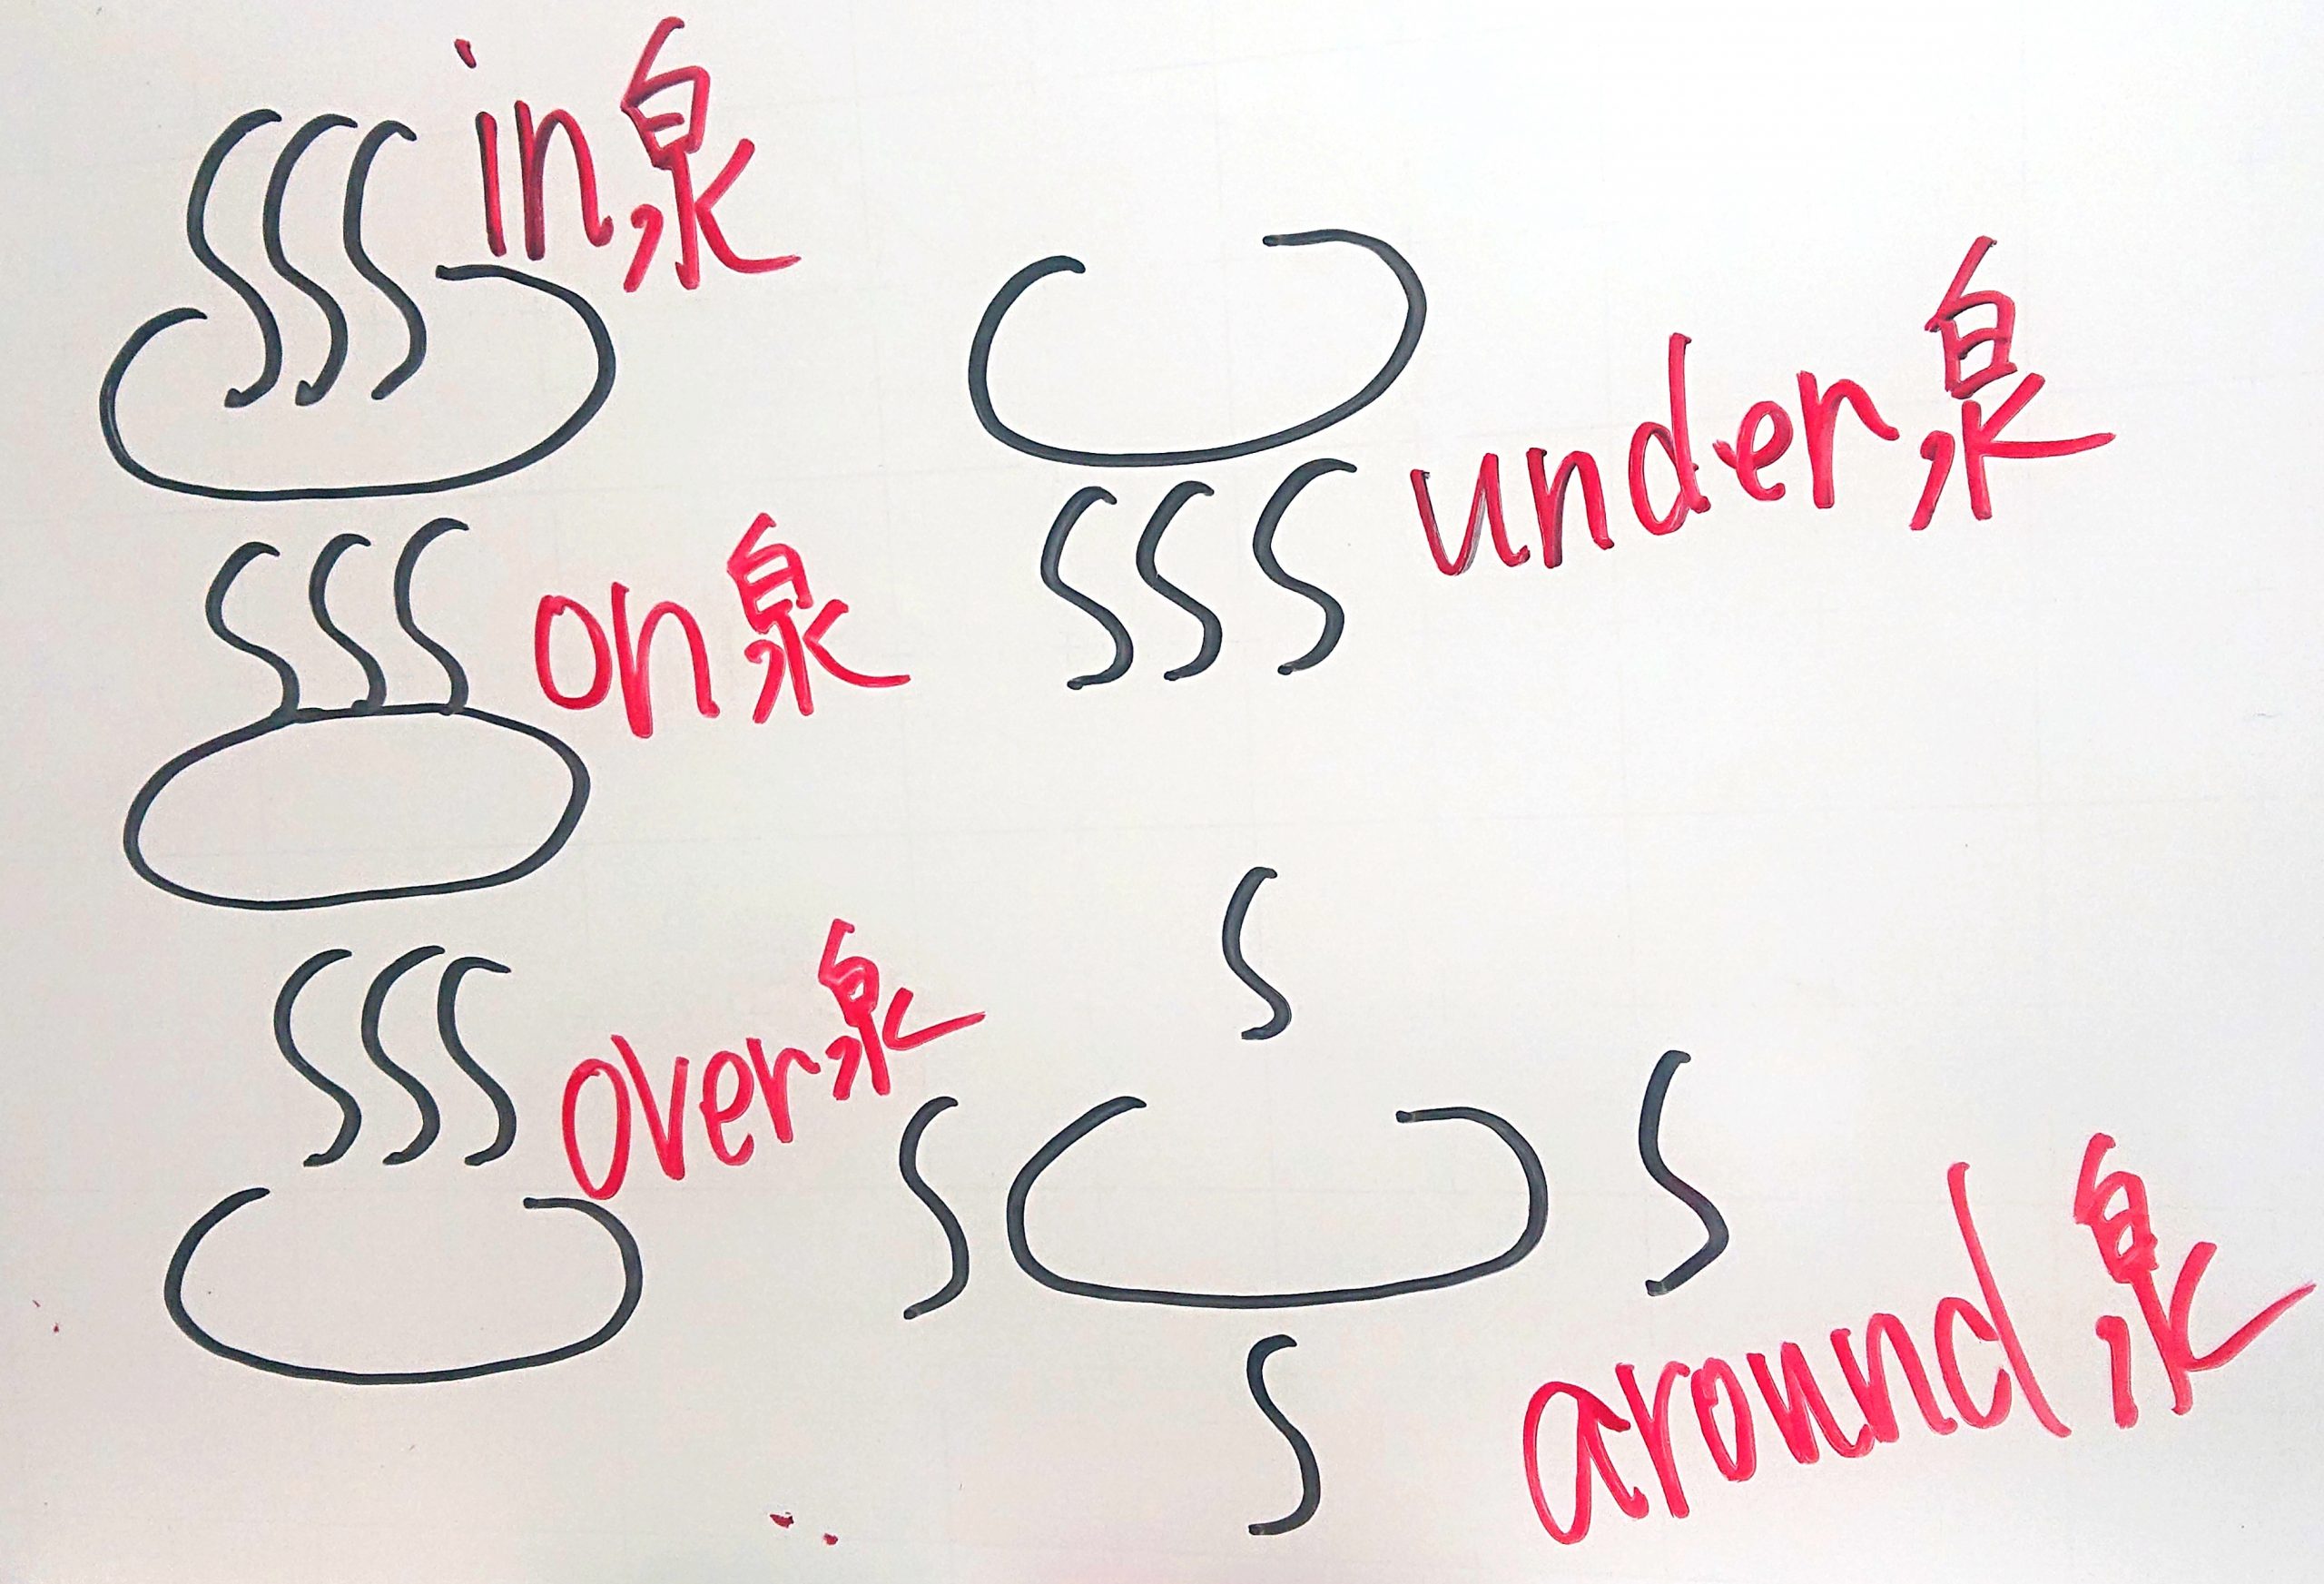 in泉
on泉
over泉
under泉
around泉